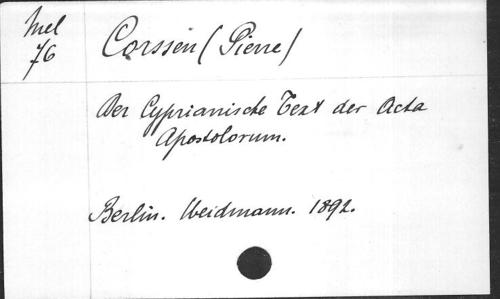 Mel
76
Corssen (Pierre)
Der Cyprianische Text der Acta
Apostolorum.
Berlin. Weidmann. 1892.